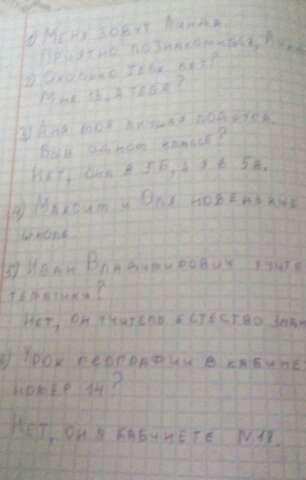 1) Меня зовут Алина.
Приятно познакомиться,
2) Сколько тебе лет?
Мне 13, а тебе?
3) Аня твоя
Вы в одном классе?
Нет, она в 5Б, а я в 5а.
4) Максим и Оля новенькие
школе
5) Иван Владимирович учите
тематики?
Нет, он учитель естествозна
6) Урок географии в кабине
номер 14?
Нет, он в кабинете №18.